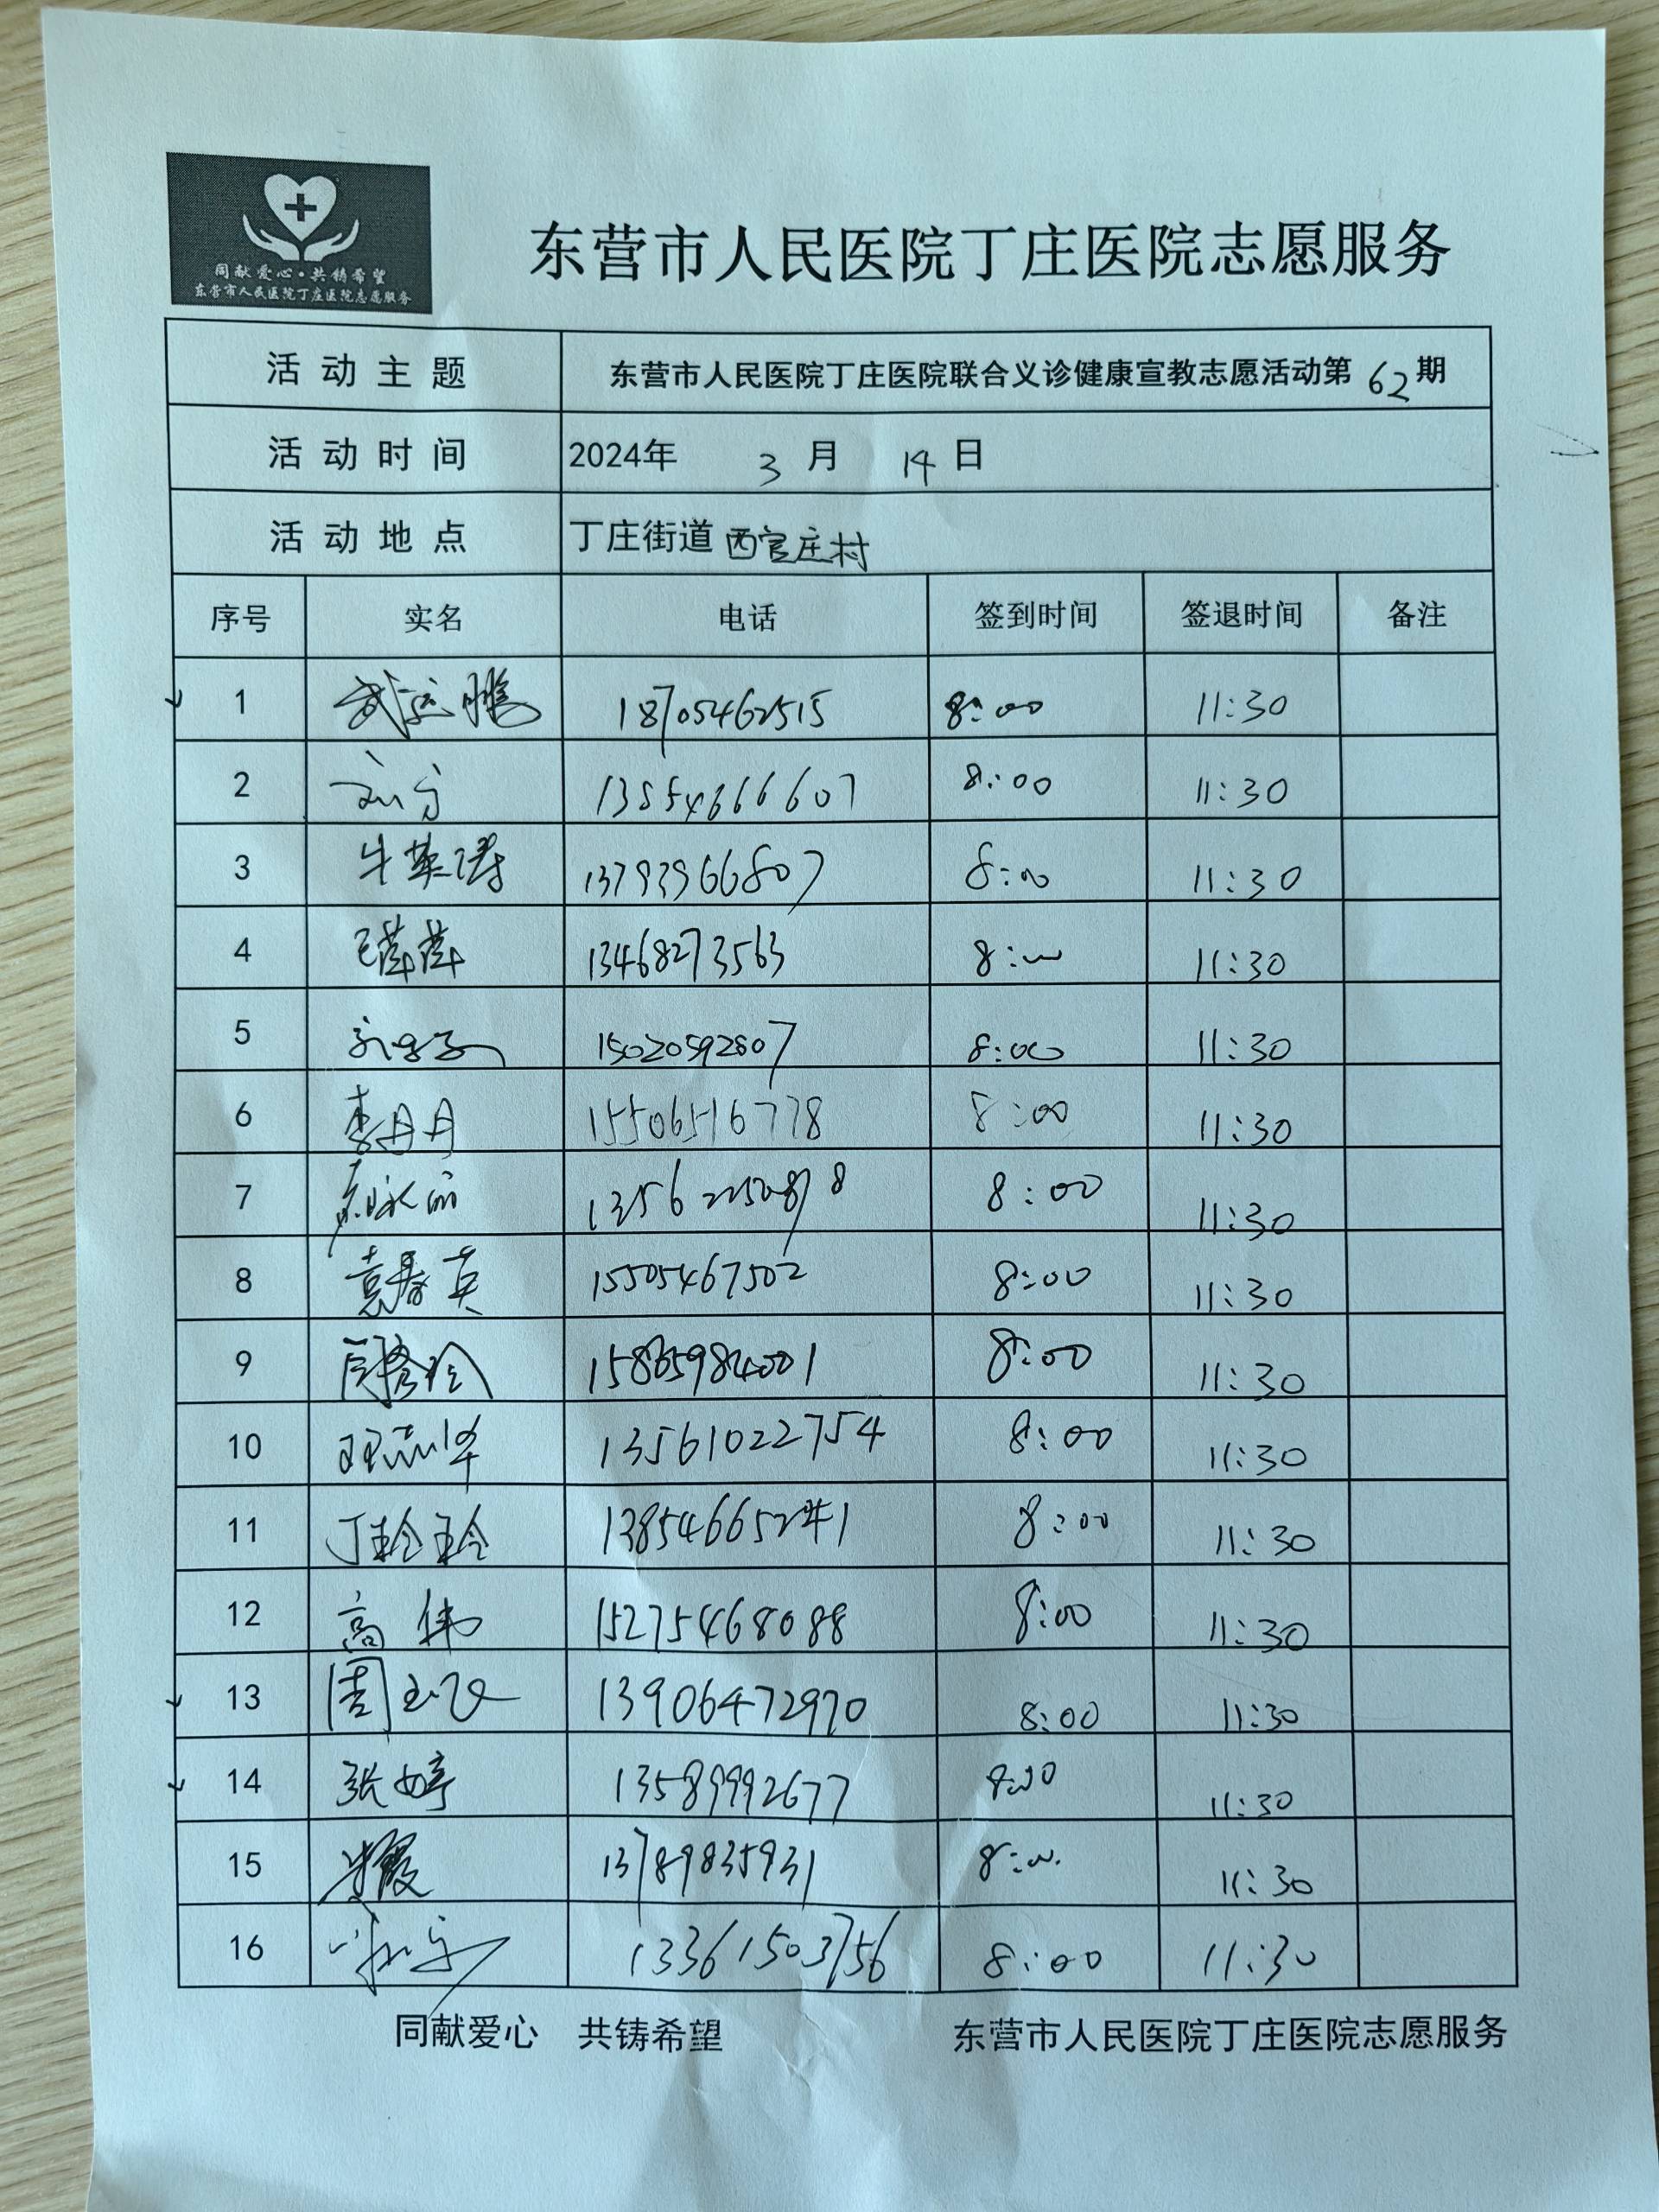 同献爱心·共铸希望
东营市人民医院丁庄医院志愿服务
东营市人民医院丁庄医院志愿服务
活动主题 东营市人民医院丁庄医院联合义诊健康宣教志愿活动第62期
活动时间 2024年 3月 14日
活动地点 丁庄街道西官庄村
序号 实名 电话 签到时间 签退时间 备注
1 武运鹏 18705462515 8:00 11:30
2 13554666607 8:00 11:30
3 牛英涛 13793966807 8:00 11:30
4 王萍萍 13468273563 8:00 11:30
5 15020592807 8:00 11:30
6 李丹丹 15506516778 8:00 11:30
7 8:00 11:30
8 袁春英 15505467502 8:00 11:30
9 15865984001 8:00 11:30
10 13561022754 8:00 11:30
11 丁玲玲 8:00 11:30
12 高伟 15275468088 8:00 11:30
13 周玉飞 13906472970 8:00 11:30
14 张婷 13589992677 8:00 11:30
15 13789835931 8:00 11:30
16 13361503756 8:00 11:30
同献爱心 共铸希望 东营市人民医院丁庄医院志愿服务